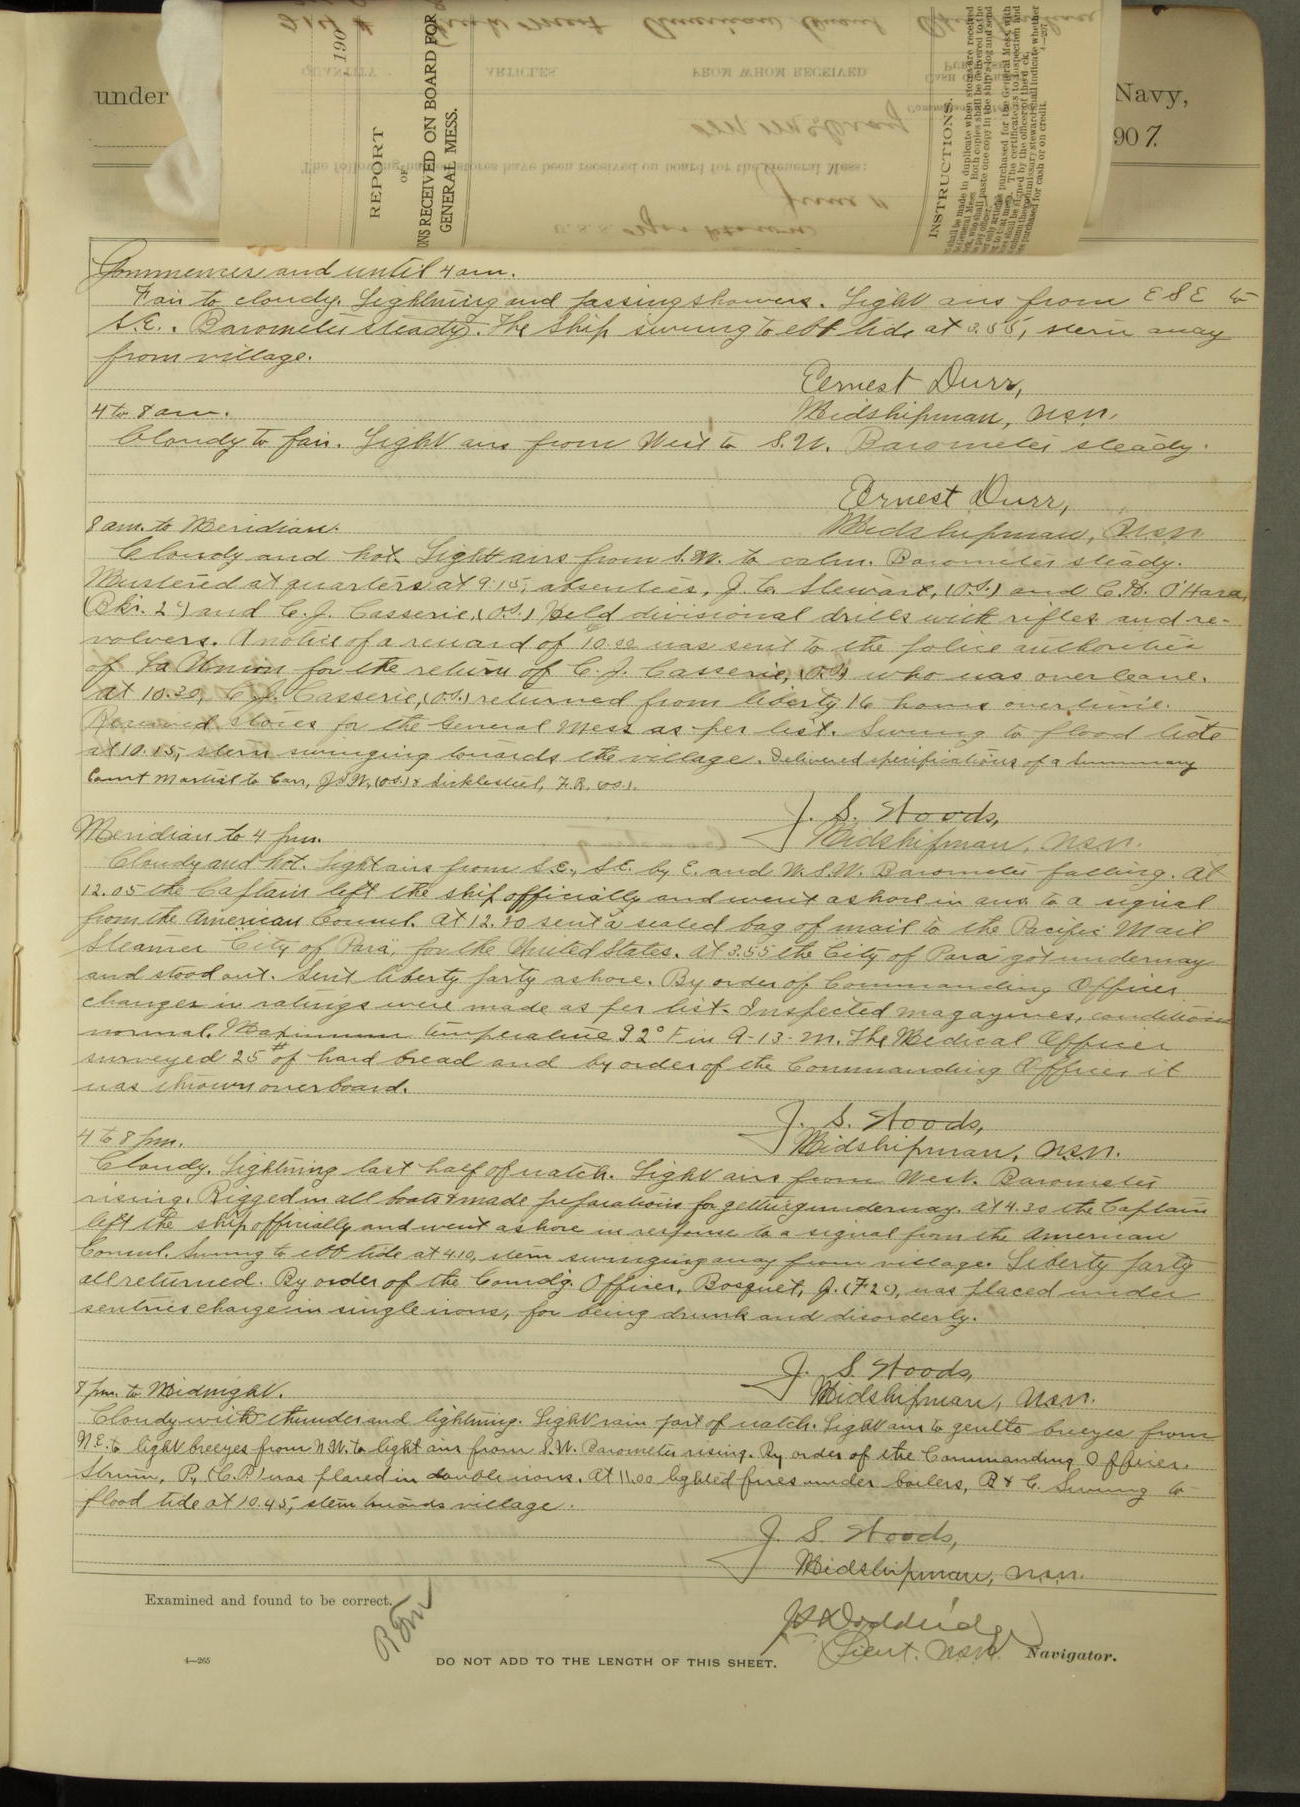 under
Navy,
1907.
REPORT
OF
RECEIVED ON BOARD FOR
GENERAL MESS.
190
INSTRUCTIONS.
QUANTITY
ARTICLES
FROM WHOM RECEIVED
The following stores have been received on board for the General Mess:
U. S. S. Yorktown
June 11
Commences and until 4 am.
Fair to cloudy. Lightning and passing showers. Light airs from ESE to
S.E. Barometer steady. The ship swung to ebb tide at 3.55, stern away
from village.
Ernest Durr,
Midshipman, USN.
4 to 8 am.
Cloudy to fair. Light airs from West to S.W. Barometer steady.
Ernest Durr,
Midshipman, USN
8 am. to Meridian.
Cloudy and hot. Light airs from S.W. to calm. Barometer steady.
Mustered at quarters at 9:15, absentees, J. C. Stewart, (O.S.) and C.H. O'Hara,
(Bkr. 2c) and C. J. Casserie, (O.S.) Held divisional drills with rifles and re-
volvers. A notice of a reward of 10.00 was sent to the police authorities
of La Union for the return of C. J. Casserie, (O.S.) who was overleave.
At 10.30, C. J. Casserie, (O.S.) returned from liberty 16 hours overtime.
Received stores for the General Mess as per list. Swung to flood tide
at 10.15, stern swinging towards the village. Delivered specifications of a Summary
Court Martial to Carr, J.W, (O.S.) & Sicklesteel, F.R, (O.S.).
J. S. Woods,
Midshipman, USN.
Meridian to 4 pm.
Cloudy and hot. Light airs from S.E., SE. by E. and W.S.W. Barometer falling. At
12.05 the Captain left the ship officially and went ashore in ans. to a signal
from the American Consul. At 12.30 sent a sealed bag of mail to the Pacific Mail
Steamer "City of Para", for the United States. At 3.55 the City of Para got underway
and stood out. Sent liberty party ashore. By order of Commanding Officer
changes in ratings were made as per list. Inspected magazines, conditions
normal. Maximum temperature 92° F in A-13-M. The Medical Officer
surveyed 25# of hard bread and by order of the Commanding Officer it
was thrown overboard.
J. S. Woods,
Midshipman, USN.
4 to 8 pm.
Cloudy. Lightning last half of watch. Light airs from West. Barometer
rising. Rigged in all boats & made preparations for getting underway. At 4.30 the Captain
left the ship officially and went ashore in response to a signal from the American
Consul. Swung to ebb tide at 4.10, stern swinging away from village. Liberty party
all returned. By order of the Comdg. Officer, Bosquet, J. (F2c), was placed under
sentries charge in single irons, for being drunk and disorderly.
J. S. Woods,
Midshipman, USN.
8 pm. to Midnight.
Cloudy with thunder and lightning. Light rain part of watch. Light airs to gentle breezes from
N.E. to light breezes from N.W. to light airs from S.W. Barometer rising. By order of the Commanding Officer,
Strum, P, (C.P.) was placed in double irons. At 11.00 lighted fires under boilers, B & C. Swung to
flood tide at 10.45, stern towards village.
J. S. Woods,
Midshipman, USN.
Examined and found to be correct.
Doddridge
Lieut. USN. Navigator.
4—265
DO NOT ADD TO THE LENGTH OF THIS SHEET.